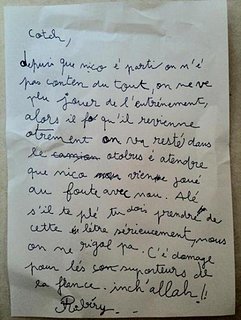 cotch,
depuis que nico é parti on n'é
pas conten du tout, on ne ve
plu jouer de l'entrénement,
alors il fo qu'il revienne
otrement on va resté dans
le otobus é atendre
que nico vienne joué
au foute avec nou. Alé
s'il te plé tu dois prendre
cette létre sérieusement, nous
on ne rigol pa. C'é domage
pour lés suporteurs de
la france. inch'allah!!
Ribéry